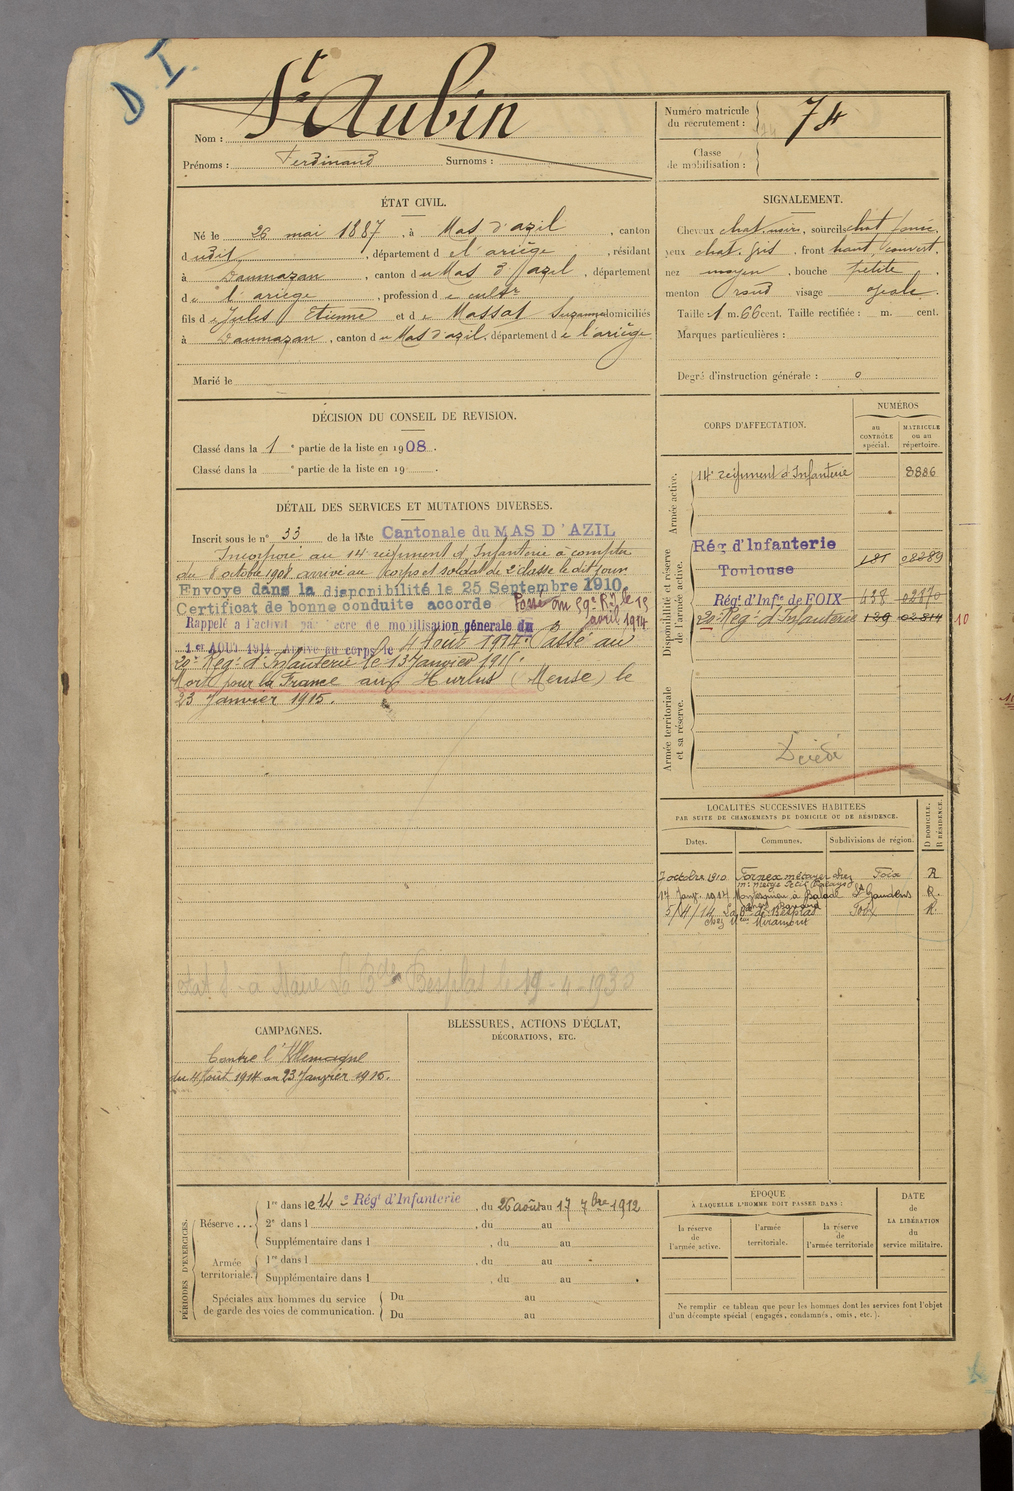 D I
Nom : St Aubin
Prénoms : Ferdinand Surnoms :
Numéro matricule du recrutement : 74
Classe de mobilisation :
ÉTAT CIVIL.
Né le 26 mai 1887, à Mas d'azil, canton
dudit, département de l'ariège, résidant
à Daumazan, canton du Mas d'azil, département
de l'ariège, profession de cultr
fils de Jules Etienne et de Massat Suzanne domiciliés
à Daumazan, canton du Mas d'azil, département de l'ariège
Marié le
SIGNALEMENT.
Cheveux chat. noirs, sourcils chat foncé,
yeux chat. gris, front haut couvert,
nez moyen, bouche petite,
menton rond visage ovale.
Taille 1 m. 66 cent. Taille rectifiée : m. cent.
Marques particulières :
Degré d'instruction générale : 0
DÉCISION DU CONSEIL DE REVISION.
Classé dans la 1e partie de la liste en 1908.
Classé dans la e partie de la liste en 19 .
DÉTAIL DES SERVICES ET MUTATIONS DIVERSES.
Inscrit sous le n° 33 de la liste Cantonale du MAS D'AZIL
Incorporé au 14e régiment d'Infanterie à compter
du 8 octobre 1908 arrivé au corps et soldat de 2e classe le dit jour.
Envoyé dans la disponibilité le 25 Septembre 1910.
Certificat de bonne conduite accordé Passé au 59e R.I. le 15 avril 1914
Rappelé à l'activité par décret de mobilisation générale du
1er AOUT 1914 Arrivé au corps le 4 Août 1914. Passé au
20e Régt d'Infanterie le 13 Janvier 1915.
Mort pour la France aux Hurlus (Meuse) le
23 Janvier 1915.
CORPS D'AFFECTATION.
NUMÉROS
au CONTRÔLE spécial.
MATRICULE ou au répertoire.
Armée active.
14e régiment d'Infanterie 8886
Disponibilité et réserve de l'armée active.
Rég. d'Infanterie
Toulouse 181 02289
Régt d'Infie de FOIX 428 02870
20e Régt d'Infanterie 129 02814
10
Armée territoriale et sa réserve.
Décédé
LOCALITÉS SUCCESSIVES HABITÉES
PAR SUITE DE CHANGEMENTS DE DOMICILE OU DE RÉSIDENCE.
Dates. Communes. Subdivisions de région. D DOMICILE. R RÉSIDENCE.
7 octobre 1910 Fornex métayer chez Foix R
17 Janv. 1914 Montesquieu à Baladé St Gaudens R.
5/4/14 La Bde de Besplas Foix R
chez Miramont
à Maire La Bde Besplas le 19-4-1930
CAMPAGNES.
Contre l'Allemagne
du 4 Août 1914 au 23 Janvier 1915.
BLESSURES, ACTIONS D'ÉCLAT,
DÉCORATIONS, ETC.
PÉRIODES D'EXERCICES.
Réserve ...
1re dans le 14e Régt d'Infanterie, du 26 août au 17 7bre 1912
2e dans l , du au
Supplémentaire dans l , du au
Armée territoriale.
1re dans l , du au
Supplémentaire dans l , du au
Spéciales aux hommes du service
de garde des voies de communication.
Du au
Du au
ÉPOQUE
À LAQUELLE L'HOMME DOIT PASSER DANS :
la réserve de l'armée active.
l'armée territoriale.
la réserve de l'armée territoriale
DATE de LA LIBÉRATION du service militaire.
Ne remplir ce tableau que pour les hommes dont les services font l'objet
d'un décompte spécial (engagés, condamnés, omis, etc.).